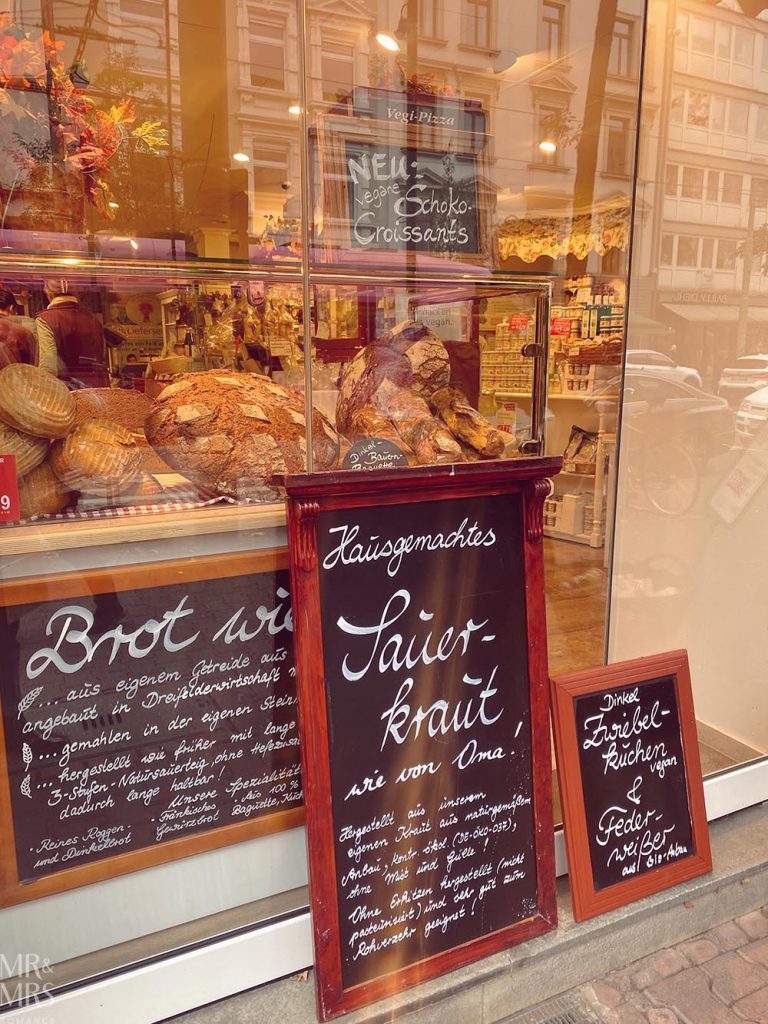 Vegi-Pizza
NEU:
vegane Schoko-
Croissants
vegan.
Dinkel-
Bauern-
Baguette
9
Brot wie
... aus eigenem Getreide aus
angebaut in Dreifelderwirtschaft
... gemahlen in der eigenen Stein
... hergestellt wie früher mit lange
3-Stufen-Natursauerteig, ohne Hefezusa
dadurch lange haltbar!
Unsere Spezialität
· Reines Roggen-
und Dinkelbrot
· Fränkisches
Gewürzbrot
· Aus 100 %
Baguette, Kuch
Hausgemachtes
Sauer-
kraut
wie von Oma!
Hergestellt aus unserem
eigenen Kraut aus naturgemäßem
Anbau, kontr. ökol. (DE-ÖKO-037),
ohne Mist und Gülle!
Ohne Erhitzen hergestellt (nicht
pasteurisiert) und sehr gut zum
Rohverzehr geeignet!
Dinkel
Zwiebel-
kuchen
vegan
&
Feder-
weißer
aus Bio-Anbau
MR&
MRS
ROMANCE